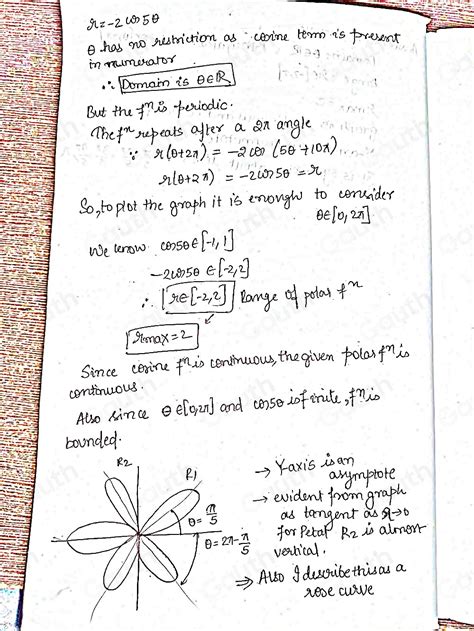 r = -2 cos 5θ
θ has no restriction as cosine term is present
in numerator
∴ Domain is θ∈R
But the fⁿ is periodic.
The fⁿ repeats after a 2π angle
∵ r(θ+2π) = -2cos (5θ+10π)
r(θ+2π) = -2cos5θ = r
So, to plot the graph it is enough to consider
θ∈[0, 2π]
We know cos5θ ∈ [-1, 1]
-2cos5θ ∈ [-2,2]
∴ r∈[-2,2] Range of polar fⁿ
rmax = 2
Since cosine fⁿ is continuous, the given polar fⁿ is
continuous.
Also since θ∈[0,2π] and cos5θ is finite, fⁿ is
bounded.
R2
R1
θ = π/5
θ = 2π - π/5
→ Y-axis is an
asymptote
→ evident from graph
as tangent as r→0
for Petal R2 is almost
vertical.
⇒ Also I describe this as a
rose curve